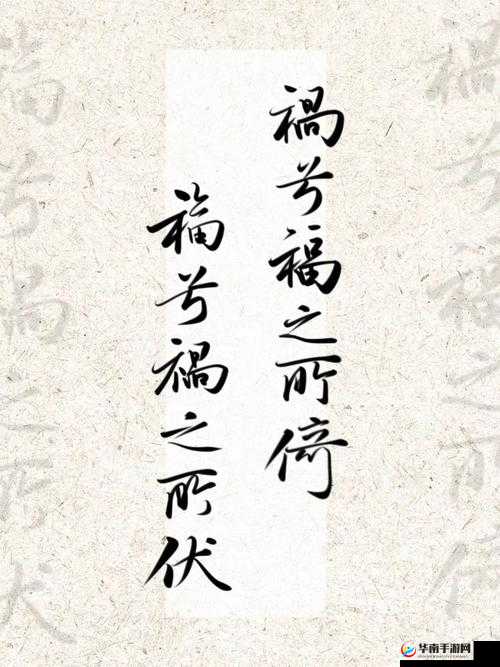 禍兮福之所倚
福兮禍之所伏
华南手游网